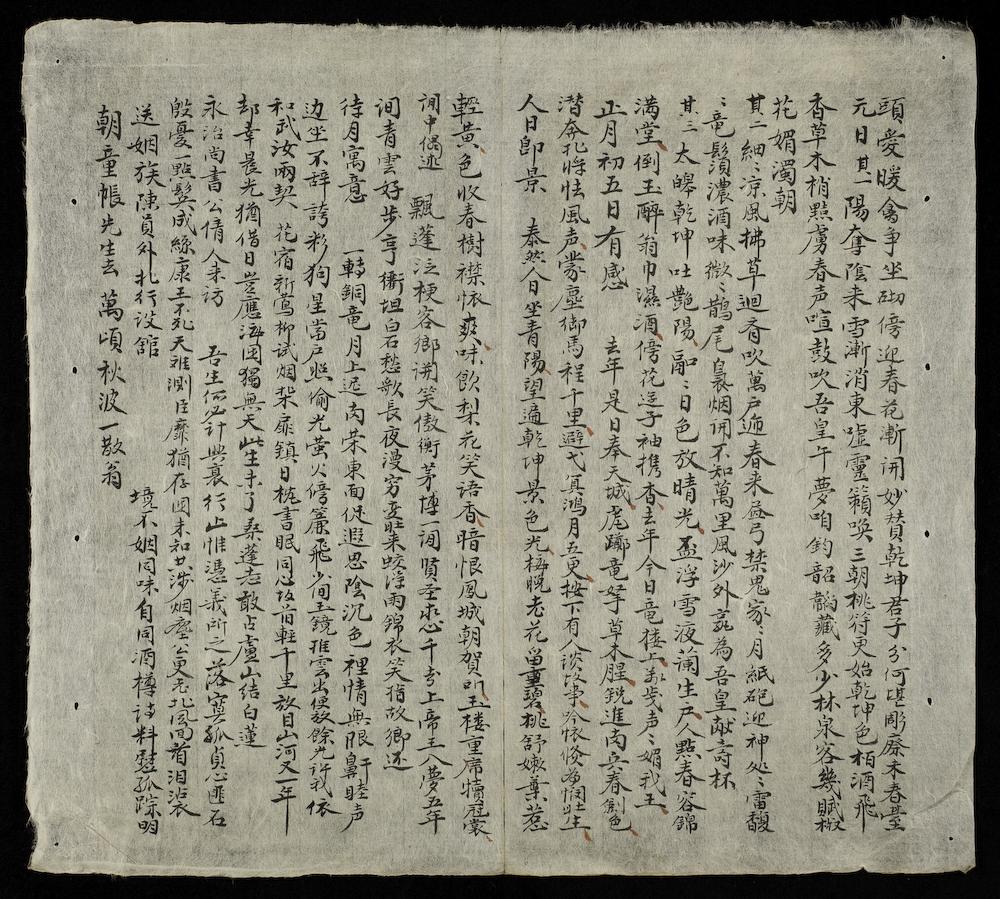 頭愛暖禽爭坐砌傍迎春花漸開妙贊乾坤君子分何堪彫廢未春臺
元日其一 陽奪陰來雪漸消東噓靈籟喚三朝桃符更始乾坤色栢酒飛
香草木梢點虜春声喧鼓吹吾皇午夢咱鈞韶韜藏多少林泉客幾賦椒
花媚濁朝
其二 細〻凉風拂草迴斉吹萬戸迎春来 弓禁鬼家〻月紙砲迎神処〻雷馥
〻竜鬚濃酒味微〻鵲尾裊烟開不知萬里風沙外 為吾皇献壽杯
其三 太皞乾坤吐艷陽 〻日色放晴光盃浮雪液蘭生戸人點春容錦
満堂倒玉醉翁巾濕酒傍花遊子袖携香去年今日竜楼上 声〻媚我王
正月初五日有感 去年是日奉天城虎躑竜拏草木腥銳進南兵春 色
潜奔北将怯風声蒙塵御馬程千里避弋冥鴻月五更按下有人談故事
人日即景 泰然人日坐青陽望遍乾坤景色光梅晚老花留重碧桃舒嫩葉惹
輕黃色收春樹襟怀爽味飲梨花笑語香暗恨鳳城朝賀 玉楼重席 冠裳
 中偶述 飄蓬泛梗客鄉 笑傲衡茅博一 賢圣 心千古上帝王入夢五年
 青雲好步亨衢坦白石愁歌長夜漫穷 来蛟浮雨錦衣笑指故鄉还
待月寓意 一轉銅竜月上迟南荣東面促遐思陰沉色裡情無限鼻 睦声
边坐不辞誇彩狗星當戸照偷光萤火傍簾飛少间玉鏡推雲出便放餘光許我依
和武汝兩契 花宿新鶯柳試烟柴扉鎮日枕書眠同心故 軽千里放目山河又一年
却幸晨光猶借日豈應海国獨無天此生未了桑蓬志敢占盧山结白蓮
永治尚書公倩人来訪 吾生何必計興衰行止惟憑義所之落寞孤貞心匪石
殷憂一點髮成絲康王不死天难測臣靡猶存国未知共涉烟塵公更老北風回首泪沾裳
送姻族陳員外北行設舘 境不姻同味自同酒樽詩料 孤踪明
朝童帳先生去 萬頃秋波一散翁